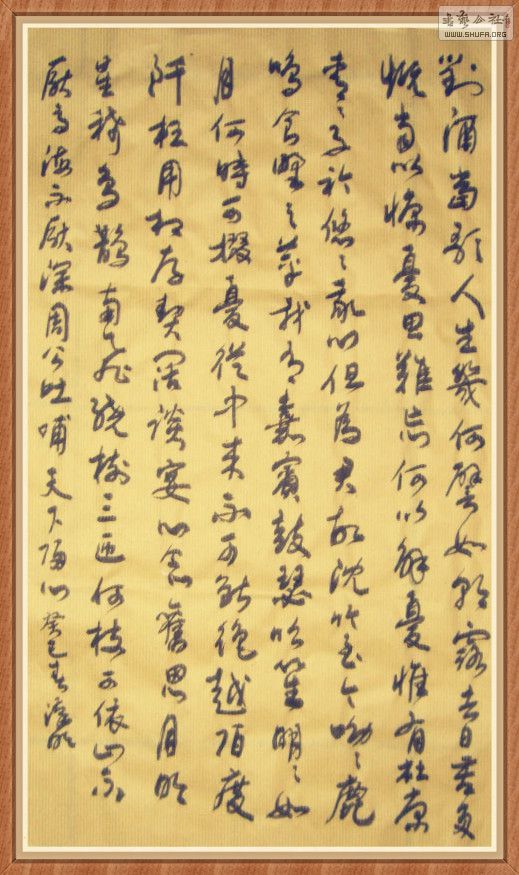 對酒當歌人生幾何譬如朝露去日苦多
慨當以慷憂思難忘何以解憂惟有杜康
青々子衿悠々我心但為君故沈吟至今呦々鹿
鳴食野之苹我有嘉賓鼓瑟吹笙明々如
月何時可掇憂從中來不可斷絕越陌度
阡枉用相存契闊談宴心念舊恩月明
星稀烏鵲南飛繞樹三匝何枝可依山不
厭高海不厭深周公吐哺天下歸心 癸巳春
書藝公社
WWW.SHUFA.ORG